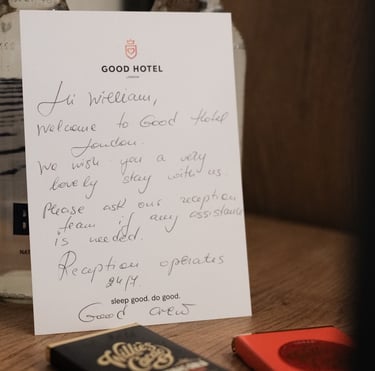 GOOD HOTEL
LONDON
Hi William,
Welcome to Good Hotel
London.
We wish you a very
lovely stay with us.
Please ask our reception
team if any assistance
is needed.
Reception operates
24/7.
sleep good. do good.
Good Crew